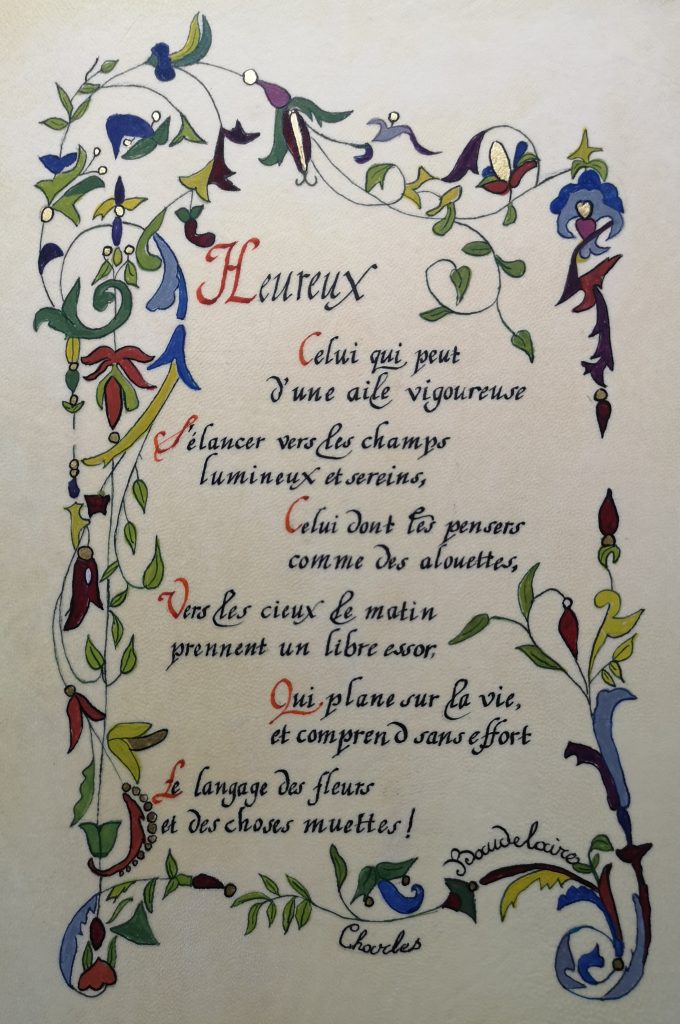 Heureux
Celui qui peut
d'une aile vigoureuse
S'élancer vers les champs
lumineux et sereins,
Celui dont les pensers
comme des alouettes,
Vers les cieux le matin
prennent un libre essor,
Qui plane sur la vie,
et comprend sans effort
Le langage des fleurs
et des choses muettes !
Charles
Baudelaire